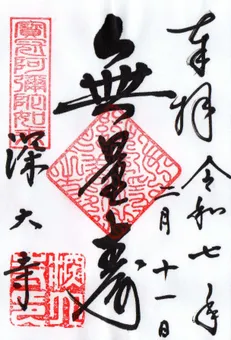 奉拝
令和七年
二月十一日
無量寿
寳冠阿彌陀如来
深大寺